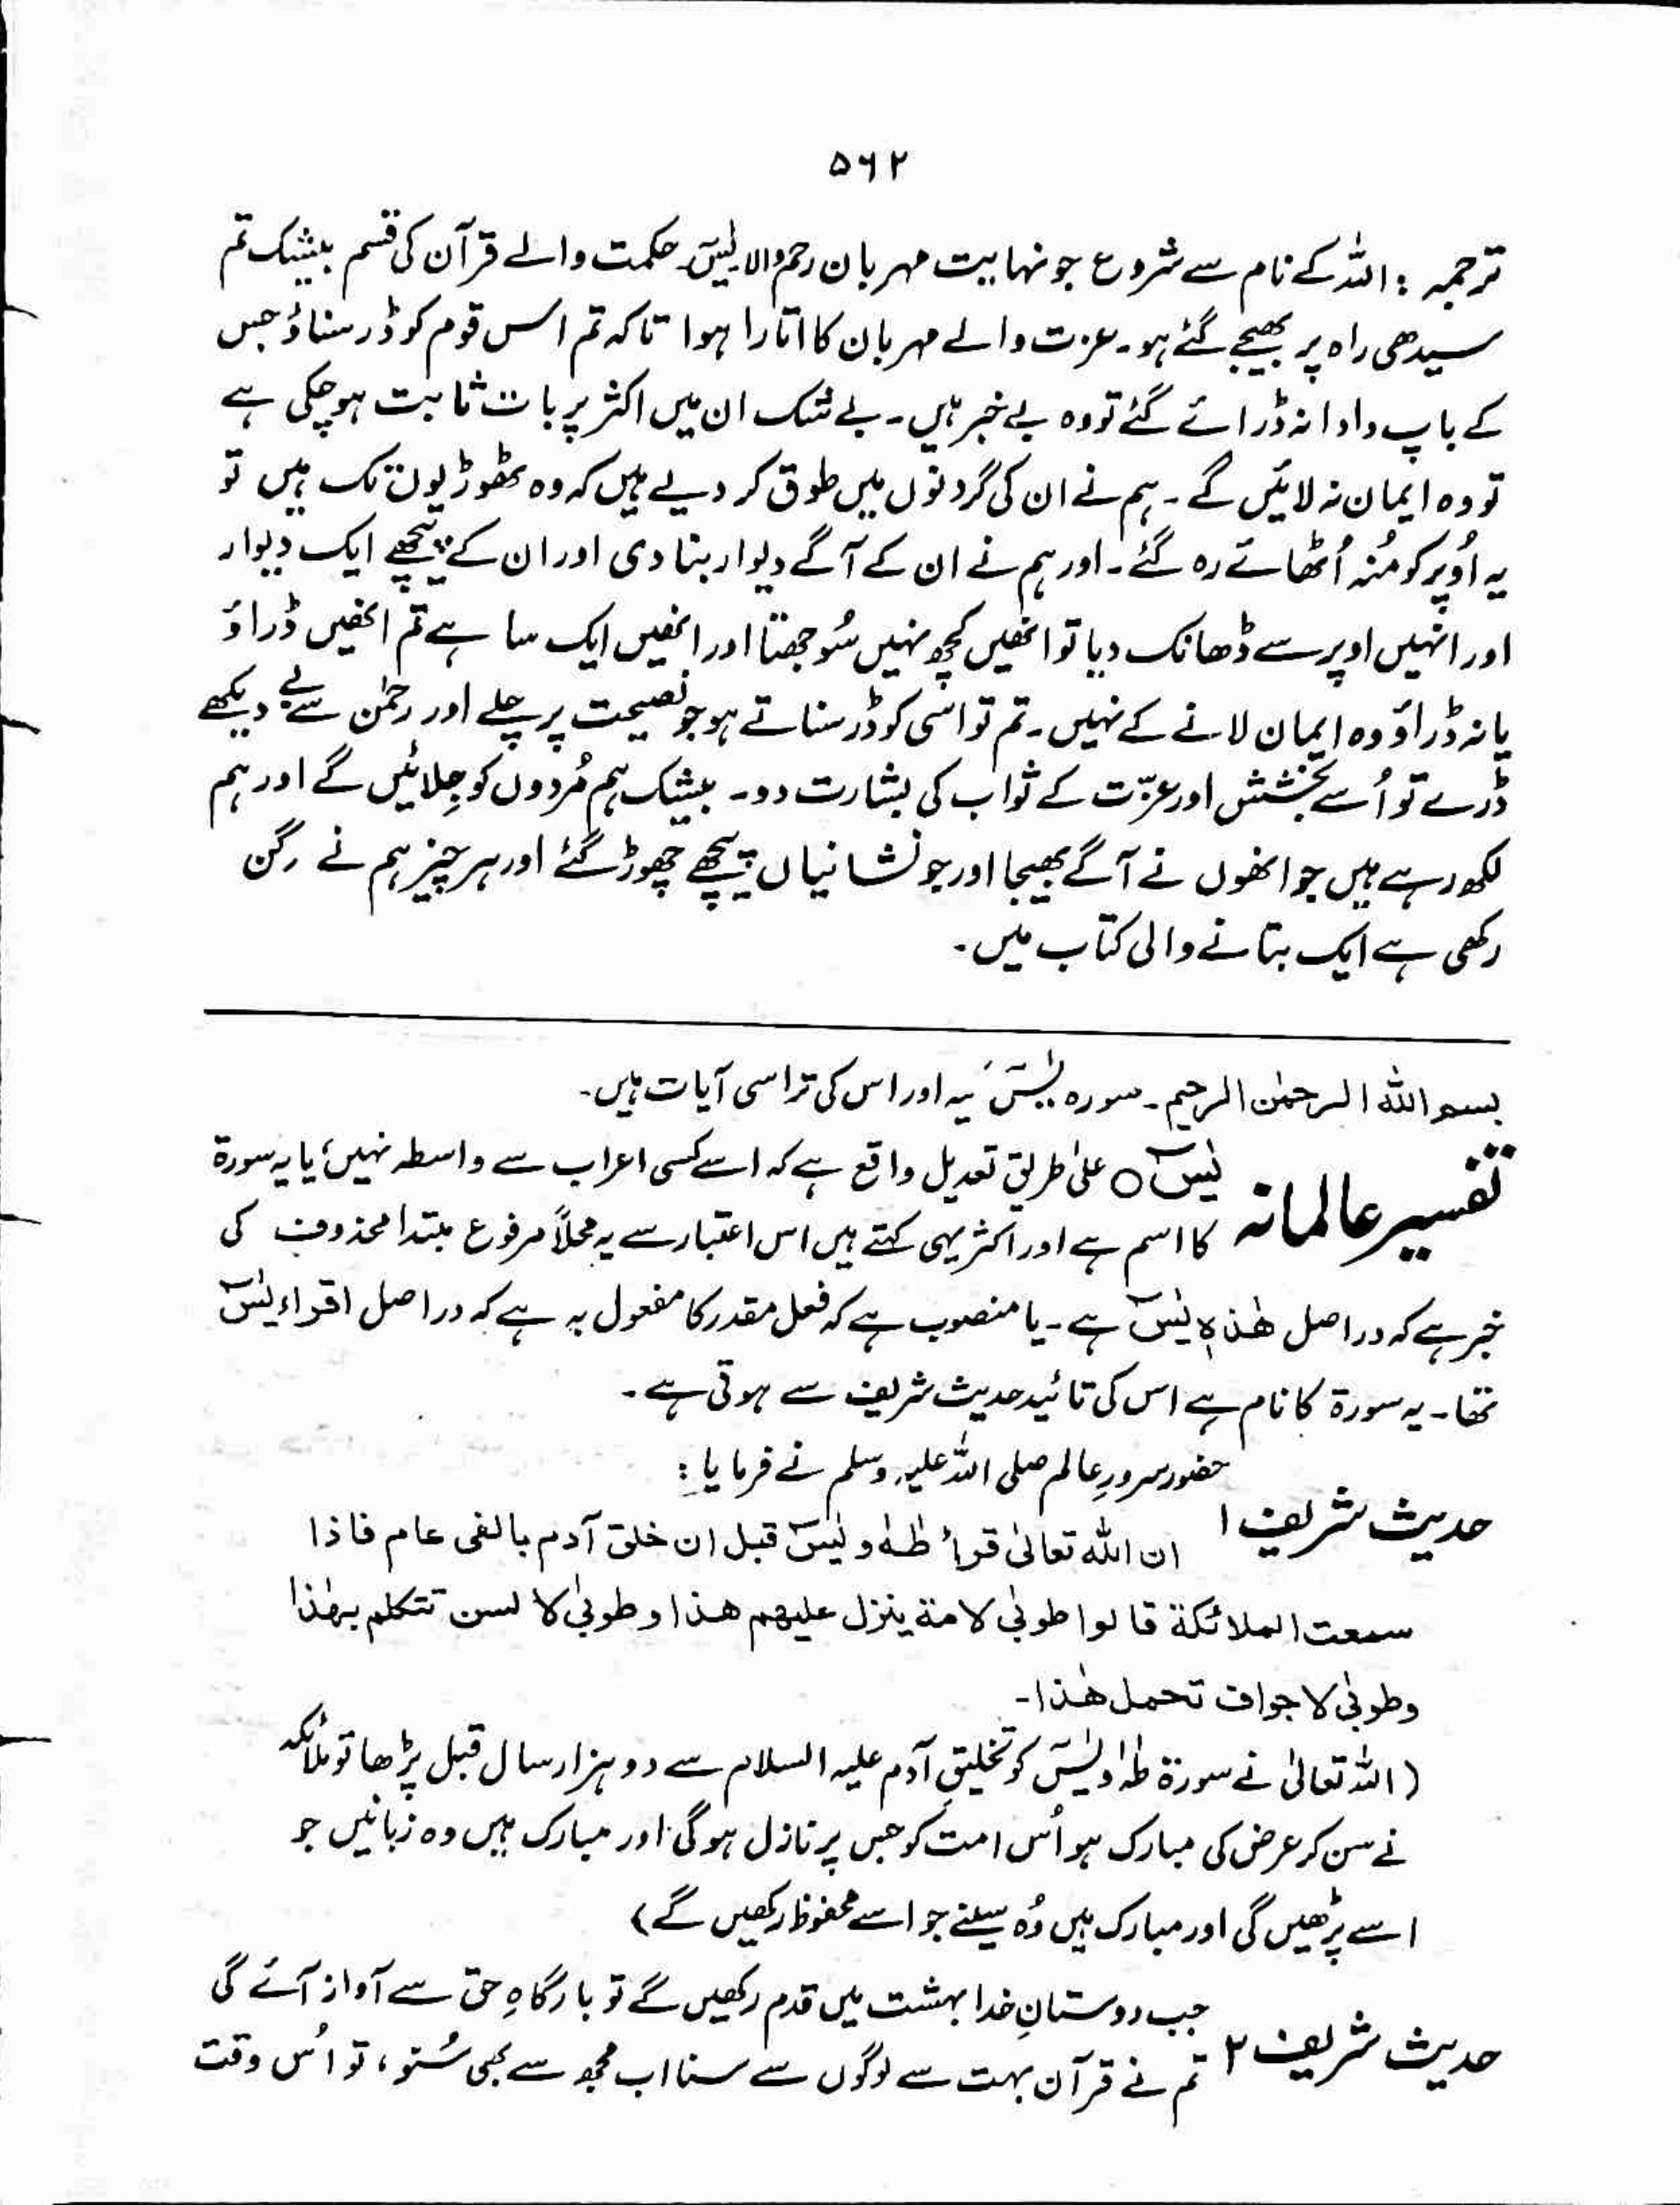 ۵۶۲
ترجمہ : اللہ کے نام سے شروع جو نہایت مہربان رحم والا یٰسٓ۔ حکمت والے قرآن کی قسم بیشک تم
سیدھی راہ پر بھیجے گئے ہو۔ عزت والے مہربان کا اتارا ہوا تاکہ تم اس قوم کو ڈر سناؤ جس
کے باپ دادا نہ ڈرائے گئے تو وہ بے خبر ہیں۔ بے شک ان میں اکثر پر بات ثابت ہو چکی ہے
تو وہ ایمان نہ لائیں گے ۔ ہم نے ان کی گردنوں میں طوق کر دیے ہیں کہ وہ ٹھوڑیوں تک ہیں تو
یہ اُوپر کو مُنہ اُٹھاتے رہ گئے۔ اور ہم نے ان کے آگے دیوار بنا دی اور ان کے پیچھے ایک دیوار
اور انہیں اوپر سے ڈھانک دیا تو انھیں کچھ نہیں سُوجھتا اور انھیں ایک سا ہے تم انھیں ڈراؤ
یا نہ ڈراؤ وہ ایمان لانے کے نہیں۔ تم تو اسی کو ڈر سناتے ہو جو نصیحت پر چلے اور رحمٰن سے بے دیکھے
ڈرے تو اُسے بخشش اور عزّت کے ثواب کی بشارت دو۔ بیشک ہم مُردوں کو جِلائیں گے اور ہم
لکھ رہے ہیں جو انھوں نے آگے بھیجا اور جو نشانیاں پیچھے چھوڑ گئے اور ہر چیز ہم نے گن
رکھی ہے ایک بتانے والی کتاب میں۔
بسم اللہ الرحمٰن الرحیم۔ سورہ یٰسٓ یہ اور اس کی تراسی آیات ہیں۔
تفسیر عالمانہ یٰسٓ ○ علیٰ طریق تعدیل واقع ہے کہ اسے کسی اعراب سے واسطہ نہیں؛ یا یہ سورۃ
کا اسم ہے اور اکثر یہی کہتے ہیں اس اعتبار سے یہ محلاً مرفوع مبتدا محذوف کی
خبر ہے کہ دراصل ھٰذہٖ یٰسٓ ہے۔ یا منصوب ہے کہ فعل مقدر کا مفعول بہ ہے کہ دراصل اقراء یٰسٓ
تھا۔ یہ سورۃ کا نام ہے اس کی تائید حدیث شریف سے ہوتی ہے۔
حضور سرورِ عالم صلی اللہ علیہ وسلم نے فرمایا :
حدیث شریف ۱ ان اللہ تعالیٰ قرأ طٰہٰ و یٰسٓ قبل ان خلق آدم بالفی عام فاذا
سمعت الملائکۃ قالوا طوبیٰ لامۃ ینزل علیھم ھذا و طوبیٰ لا لسن تتکلم بھٰذا
وطوبیٰ لاجواف تحمل ھٰذا۔
( اللہ تعالیٰ نے سورۃ طٰہٰ و یٰسٓ کو تخلیقِ آدم علیہ السلام سے دو ہزار سال قبل پڑھا تو ملائکہ
نے سن کر عرض کی مبارک ہو اُس امت کو جس پر نازل ہو گی اور مبارک ہیں وہ زبانیں جو
اسے پڑھیں گی اور مبارک ہیں وُہ سینے جو اسے محفوظ رکھیں گے)
حدیث شریف ۲ جب دوستانِ خدا بہشت میں قدم رکھیں گے تو بارگاہِ حق سے آواز آئے گی
تم نے قرآن بہت سے لوگوں سے سنا اب مجھ سے بھی سُنو، تو اُس وقت